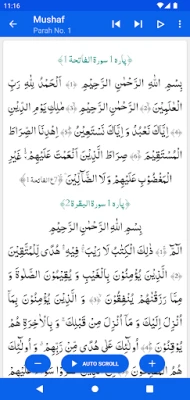 11:16
Mushaf
Parah No. 1
﴿پاره ۱ سورة الفاتحة 1﴾
بِسْمِ اللهِ الرَّحْمٰنِ الرَّحِيْمِ ﴿١﴾ اَلْحَمْدُ لِلّٰهِ رَبِّ
الْعٰلَمِيْنَ ﴿٢﴾ الرَّحْمٰنِ الرَّحِيْمِ ﴿٣﴾ مٰلِكِ يَوْمِ الدِّيْنِ
﴿٤﴾ اِيَّاكَ نَعْبُدُ وَ اِيَّاكَ نَسْتَعِيْنُ ﴿٥﴾ اِهْدِنَا الصِّرَاطَ
الْمُسْتَقِيْمَ ﴿٦﴾ صِرَاطَ الَّذِيْنَ اَنْعَمْتَ عَلَيْهِمْ ۙ غَيْرِ
الْمَغْضُوْبِ عَلَيْهِمْ وَلَا الضَّآلِّيْنَ ﴿٧﴾
﴿پاره ۱ سورة البقرة 2﴾
بِسْمِ اللهِ الرَّحْمٰنِ الرَّحِيْمِ
الٓمّٓ ﴿١﴾ ذٰلِكَ الْكِتٰبُ لَا رَيْبَ ۛ فِيْهِ ۛ هُدًى لِّلْمُتَّقِيْنَ
﴿٢﴾ الَّذِيْنَ يُؤْمِنُوْنَ بِالْغَيْبِ وَ يُقِيْمُوْنَ الصَّلٰوةَ وَ
مِمَّا رَزَقْنٰهُمْ يُنْفِقُوْنَ ﴿٣﴾ وَ الَّذِيْنَ يُؤْمِنُوْنَ بِمَآ
اُنْزِلَ اِلَيْكَ وَ مَآ اُنْزِلَ مِنْ قَبْلِكَ ۚ وَ بِالْاٰخِرَةِ هُمْ
يُوْقِنُوْنَ ﴿٤﴾ اُولٰٓئِكَ عَلٰى هُدًى مِّنْ رَّبِّهِمْ ۗ وَ اُولٰٓئِكَ
AUTO SCROLL